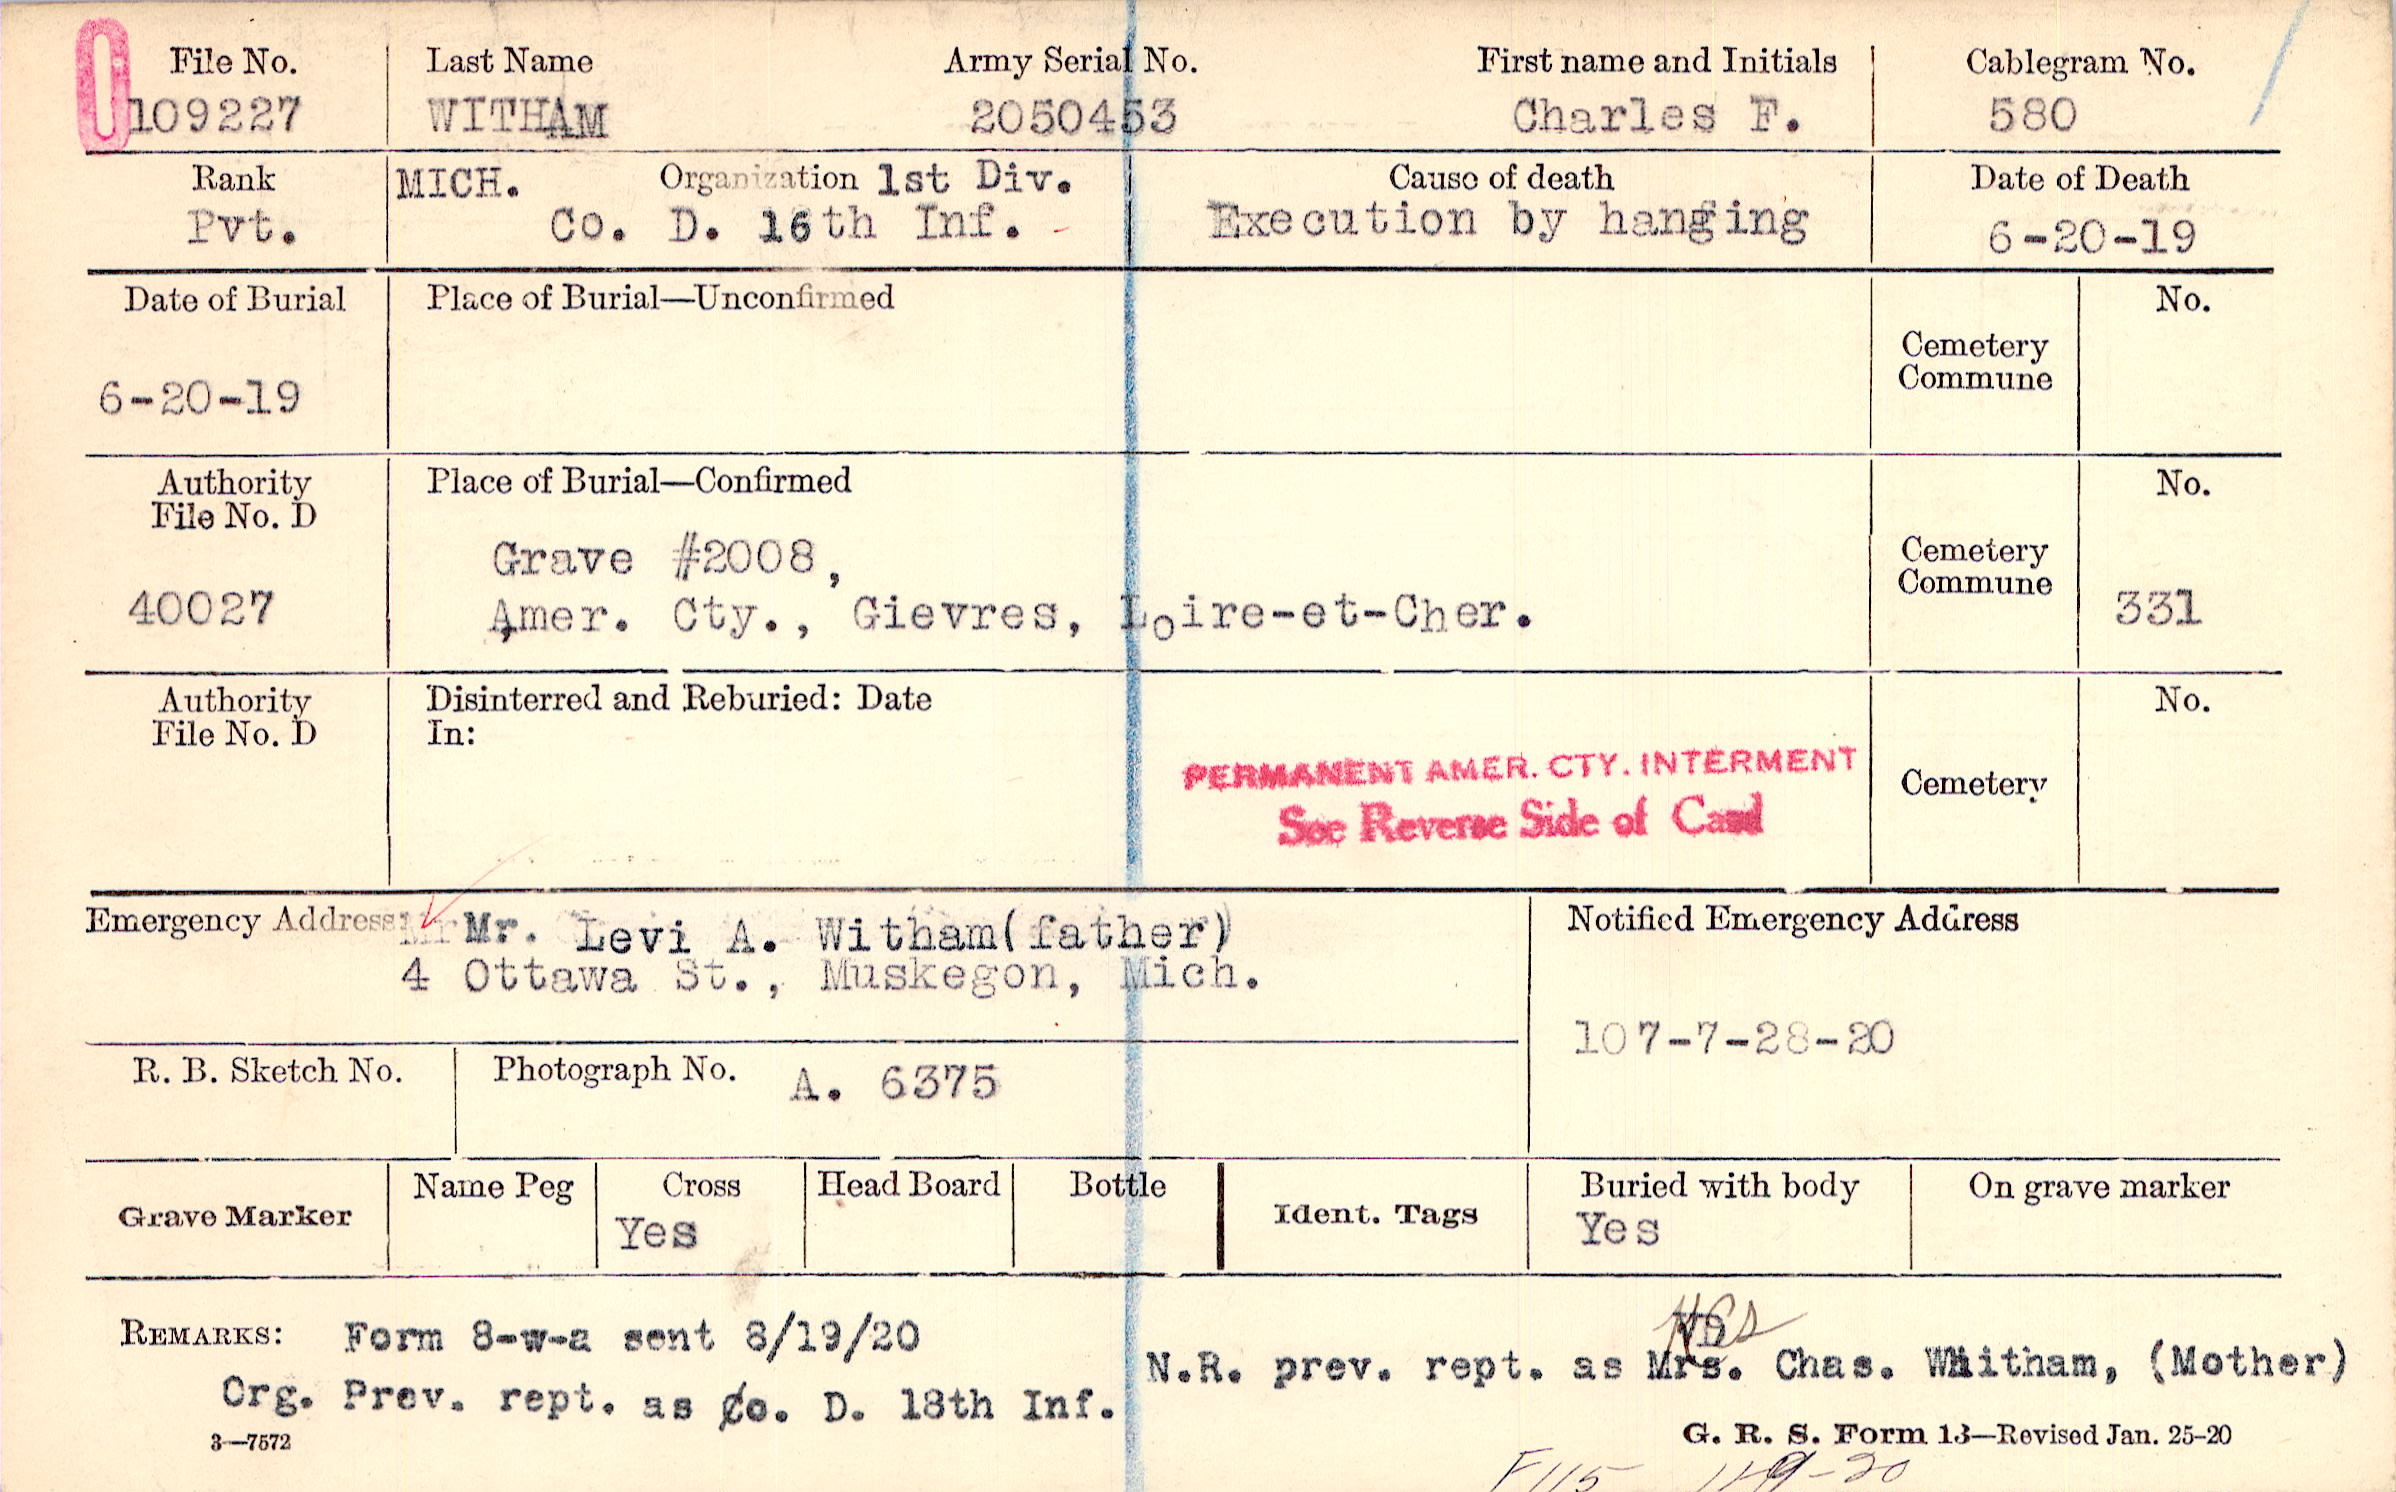 File No. Last Name Army Serial No. First name and Initials Cablegram No.
0 109227 WITHAM 2050453 Charles F. 580
Rank MICH. Organization 1st Div. Cause of death Date of Death
Pvt. Co. D. 16th Inf. Execution by hanging 6-20-19
Date of Burial Place of Burial—Unconfirmed No.
Cemetery
Commune
6-20-19
Authority Place of Burial—Confirmed No.
File No. D
Grave #2008, Cemetery
Commune
40027 Amer. Cty., Gievres, Loire-et-Cher. 331
Authority Disinterred and Reburied: Date No.
File No. D In:
PERMANENT AMER. CTY. INTERMENT
Cemetery
See Reverse Side of Card
Emergency Address: Mr. Levi A. Witham(father) Notified Emergency Address
4 Ottawa St., Muskegon, Mich.
107-7-28-20
R. B. Sketch No. Photograph No. A. 6375
Name Peg Cross Head Board Bottle Buried with body On grave marker
Grave Marker Yes Ident. Tags Yes
REMARKS: Form 8-w-a sent 8/19/20
N.R. prev. rept. as Mrs. Chas. Whitham, (Mother)
Org. Prev. rept. as Co. D. 18th Inf.
3—7572 G. R. S. Form 13—Revised Jan. 25-20
F115 11-9-20